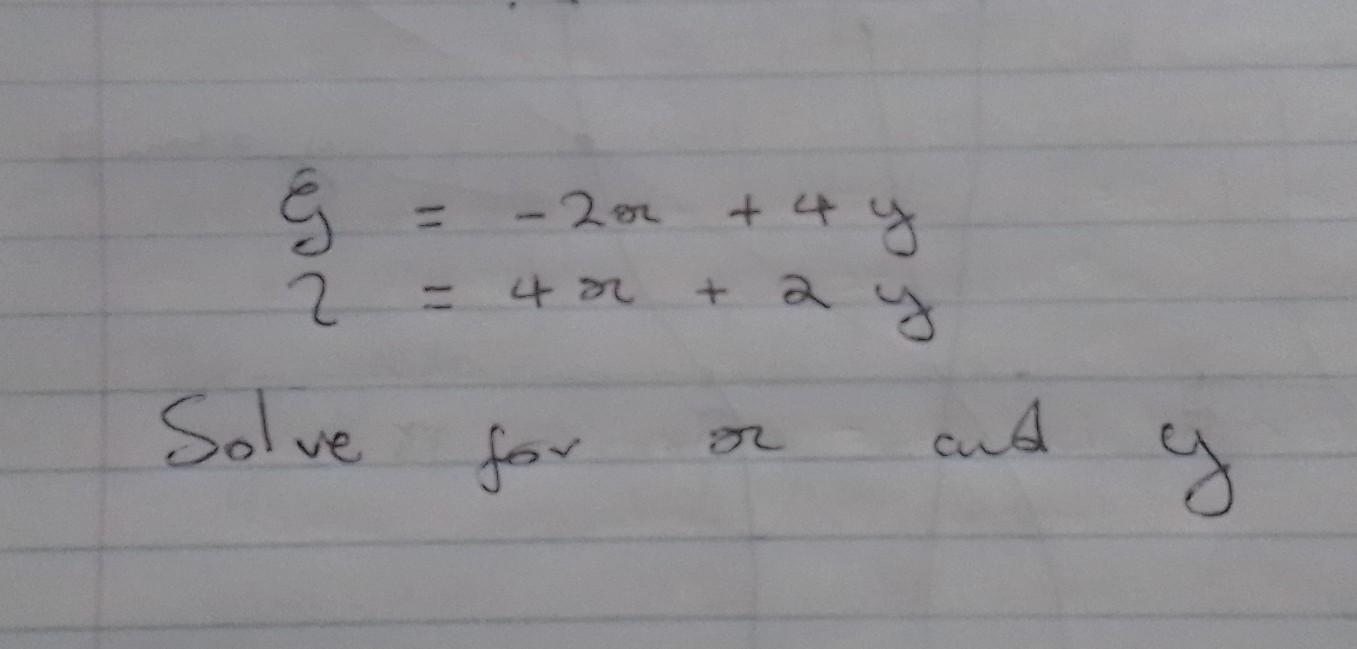 ξ = -2x + 4y
η = 4x + 2y
Solve for x and y